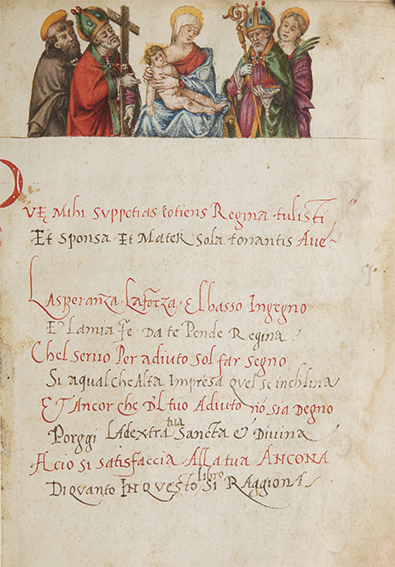 QVĘ Mihi suppetias totiens Regina tulisti
Et sponsa Et Mater Sola tonantis Ave
La speranza La forza E l basso Ingegno
E La mia fe Da te Pende Regina
Chel seruo Per adiuto sol far segno
Si a qualche Alta Impresa quel se inchlina
Et Ancor che Dl tuo Adiuto nō sia Degno
Porggi La dextra tua Sancta e Divina
Acio si satisfaccia Alla tua ANCONA
Di quanto IN questo libro Si Raggiona